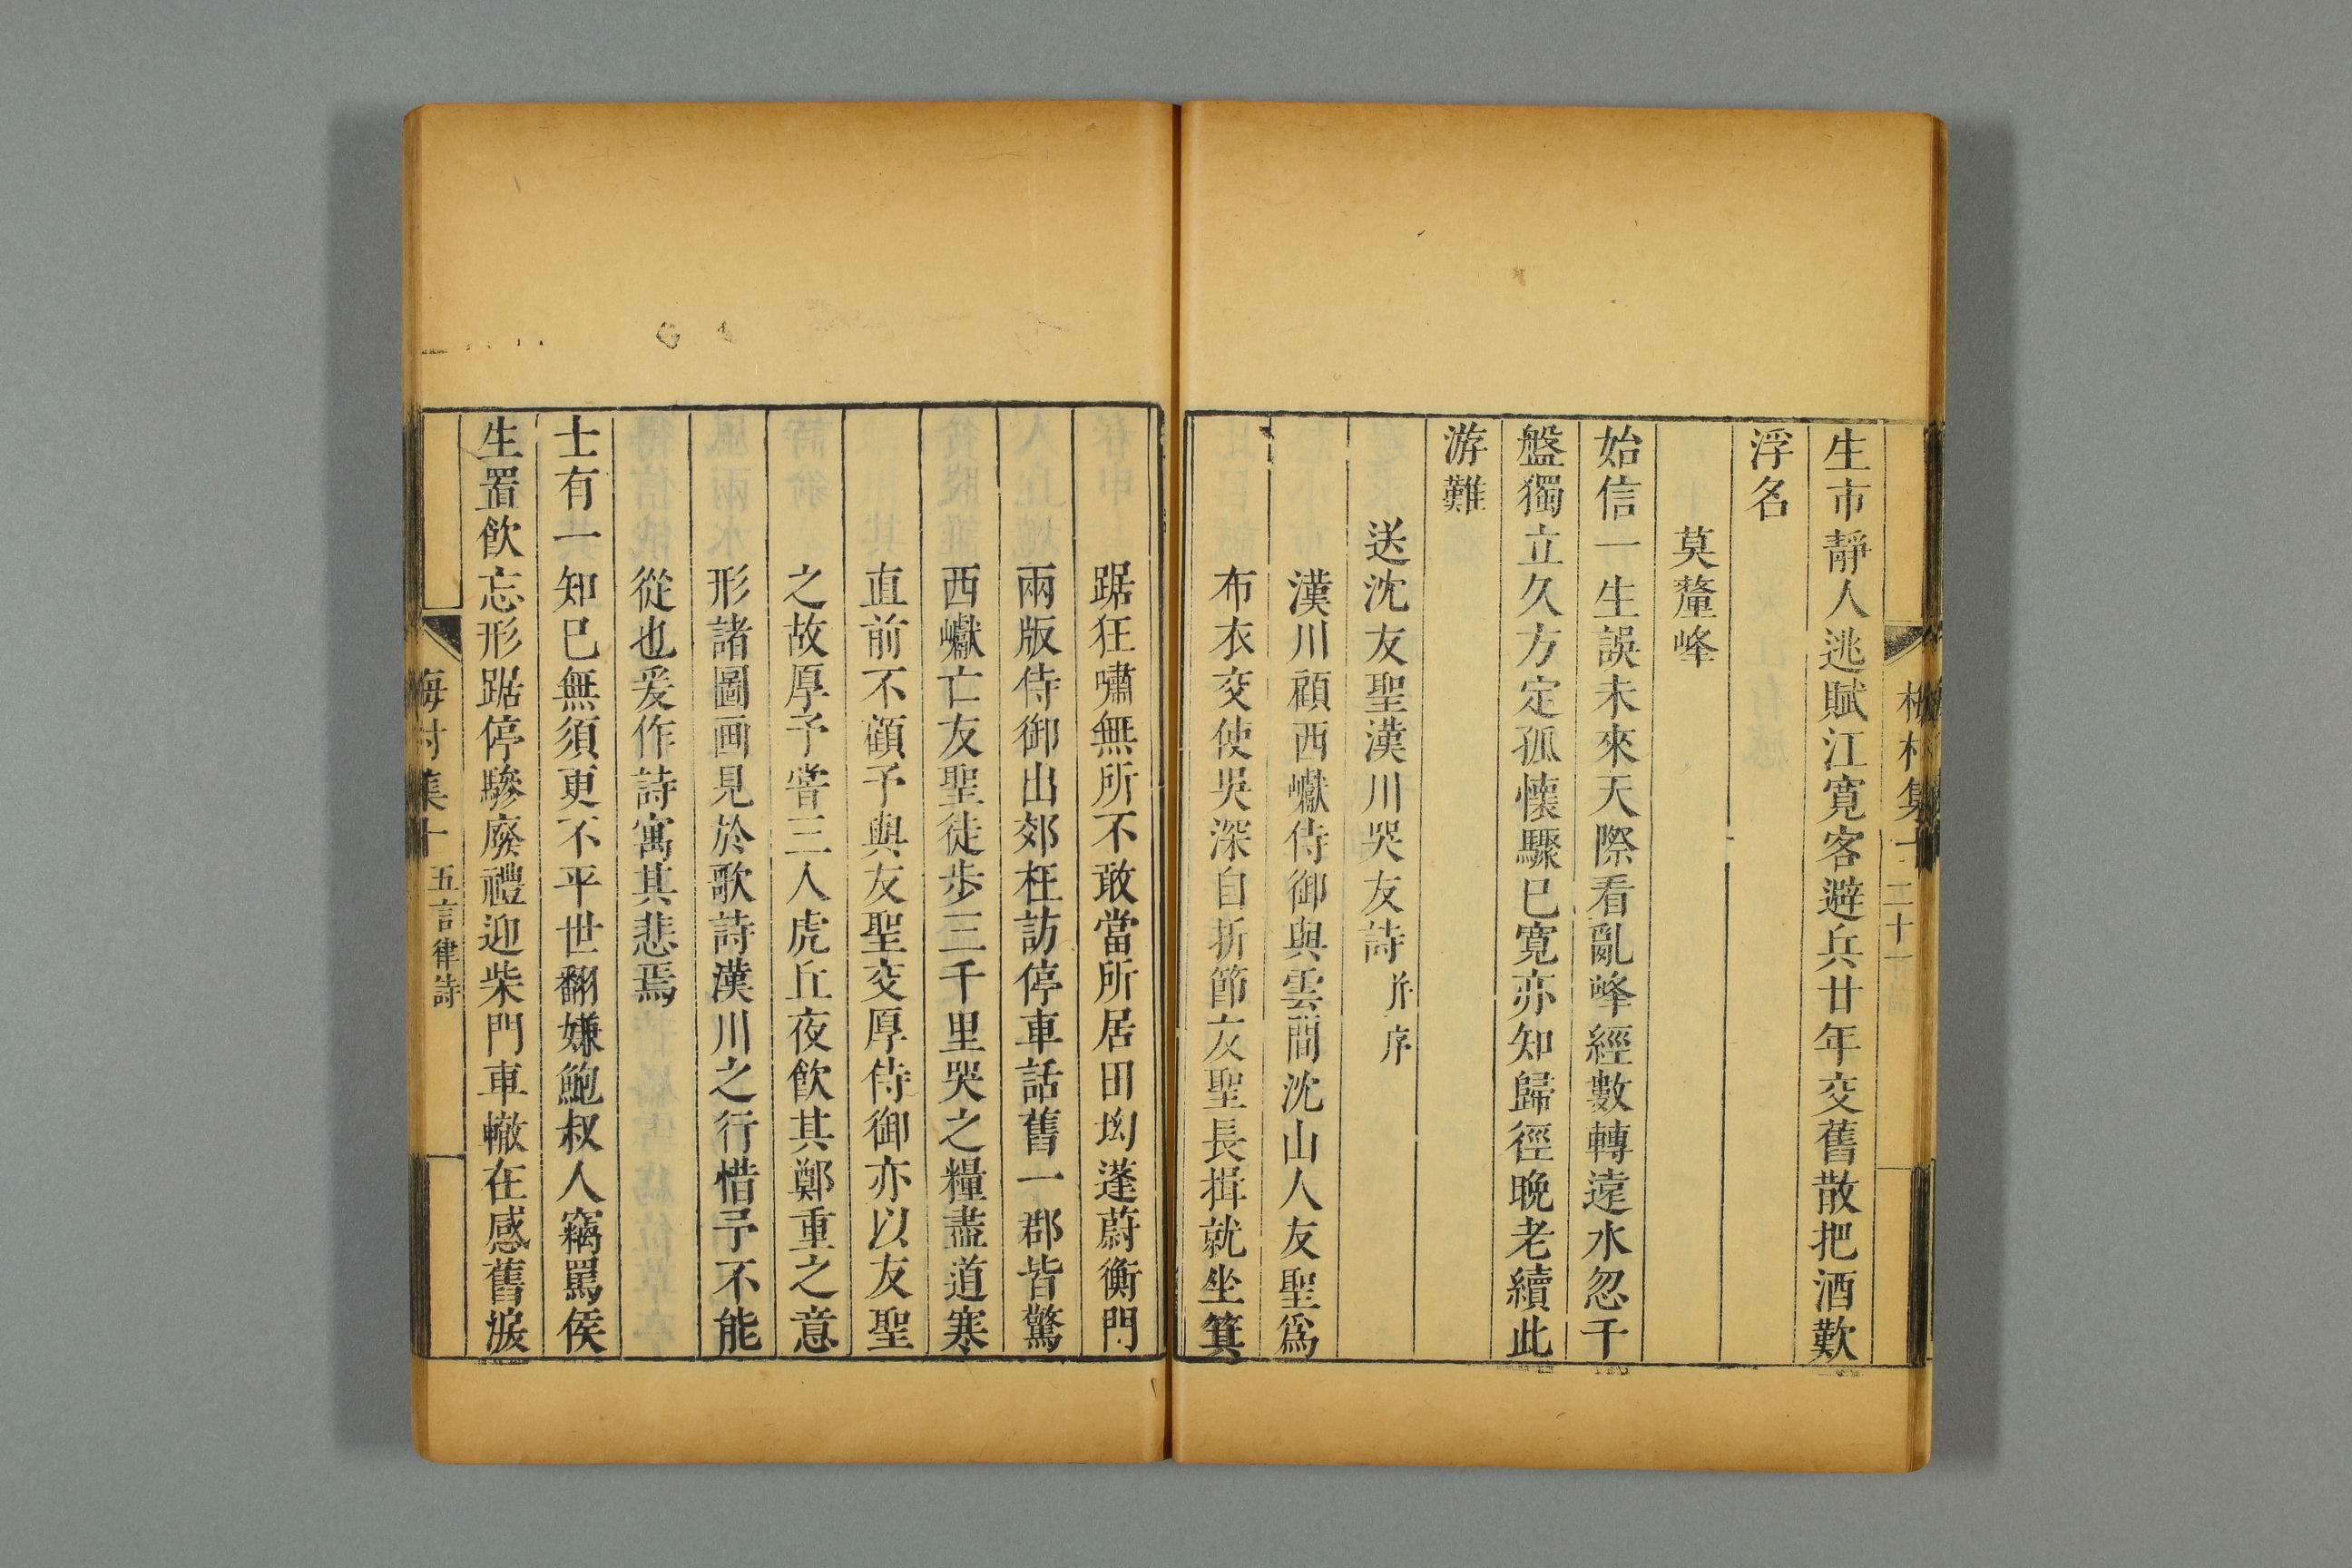 梅村集十 二十一
生市靜人逃賦江寬客避兵廿年交舊散把酒歎
浮名
莫釐峰
始信一生誤未來天際看亂峰經數轉遠水忽千
盤獨立久方定孤懷驟已寬亦知歸徑晚老續此
游難
送沈友聖漢川哭友詩 并序
漢川顧西巘侍御與雲間沈山人友聖爲
布衣交使吳深自折節友聖長揖就坐箕
踞狂嘯無所不敢當所居田坳蓬蔚衡門
兩版侍御出郊枉訪停車話舊一郡皆驚
西巘亡友聖徒步三千里哭之糧盡道寒
直前不顧予與友聖交厚侍御亦以友聖
之故厚予嘗三人虎丘夜飲其鄭重之意
形諸圖画見於歌詩漢川之行惜予不能
從也爰作詩寓其悲焉
士有一知已無須更不平世翻嫌鮑叔人竊罵侯
生置飲忘形踞停驂廢禮迎柴門車轍在感舊淚
梅村集十 五言律詩